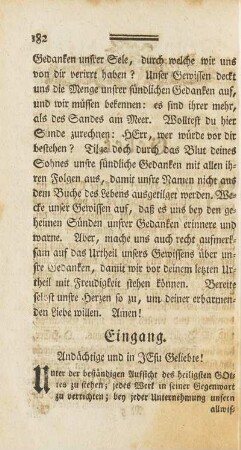 182
Gedanken unsrer Sele, durch welche wir uns
von dir verirrt haben? Unser Gewissen deckt
uns die Menge unsrer sündlichen Gedanken auf,
und wir müssen bekennen: es sind ihrer mehr,
als des Sandes am Meer. Wolltest du hier
Sünde zurechnen: HErr, wer würde vor dir
bestehen? Tilge doch durch das Blut deines
Sohnes unsre sündliche Gedanken mit allen ih-
ren Folgen aus, damit unsre Namen nicht aus
dem Buche des Lebens ausgetilget werden. We-
cke unser Gewissen auf, daß es uns bey den ge-
heimen Sünden unsrer Gedanken erinnere und
warne. Aber, mache uns auch recht aufmerk-
sam auf das Urtheil unsers Gewissens über un-
sre Gedanken, damit wir vor deinem letzten Ur-
theil mit Freudigkeit stehen können. Bereite
selbst unsre Herzen so zu, um deiner erbarmen-
den Liebe willen. Amen!
Eingang.
Andächtige und in JEsu Geliebte!
Unter der beständigen Aufsicht des heiligsten GOt-
tes zu stehen; jedes Werk in seiner Gegenwart
zu verrichten; bey jeder Unternehmung unsern
allwis-